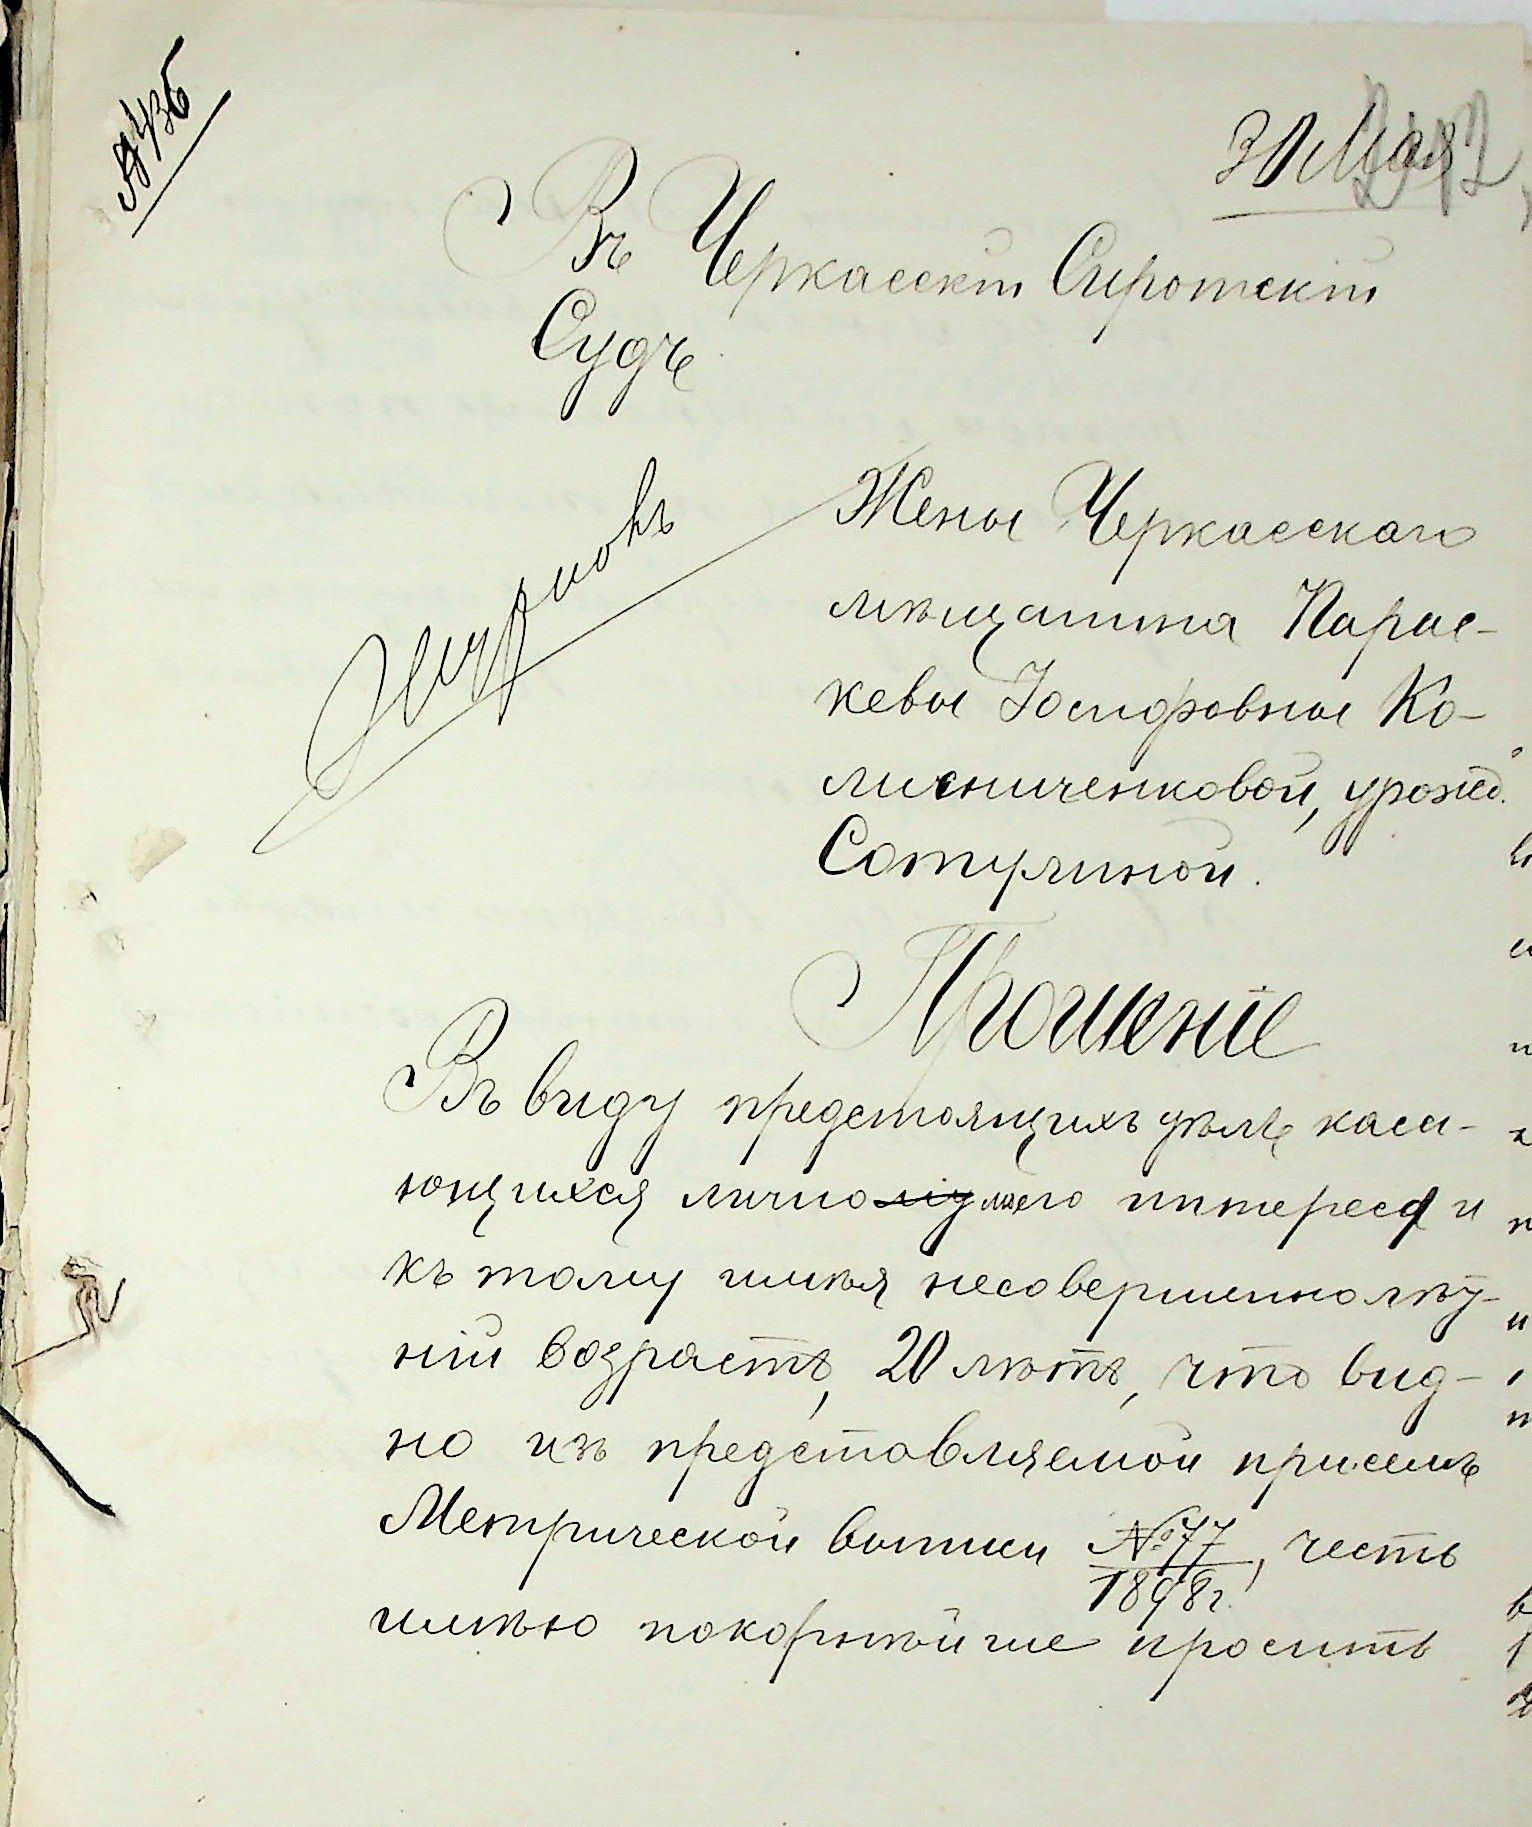 № 436
30 Мая
Въ Черкасскій Сиротскій
Судъ
Жены Черкасскаго
мѣщанина Парас-
кевы Іосифовны Ко-
лисниченковой, урожд.
Сотулиной.
Прошеніе
Въ виду предстоящихъ дѣлъ каса-
ющихся лично моего интереса и
къ тому имѣя несовершеннолѣт-
ній возрастъ, 20 лѣтъ, что вид-
но изъ представляемой при семъ
Метрической выписи № 77
1898 г., честь
имѣю покорнѣйше просить